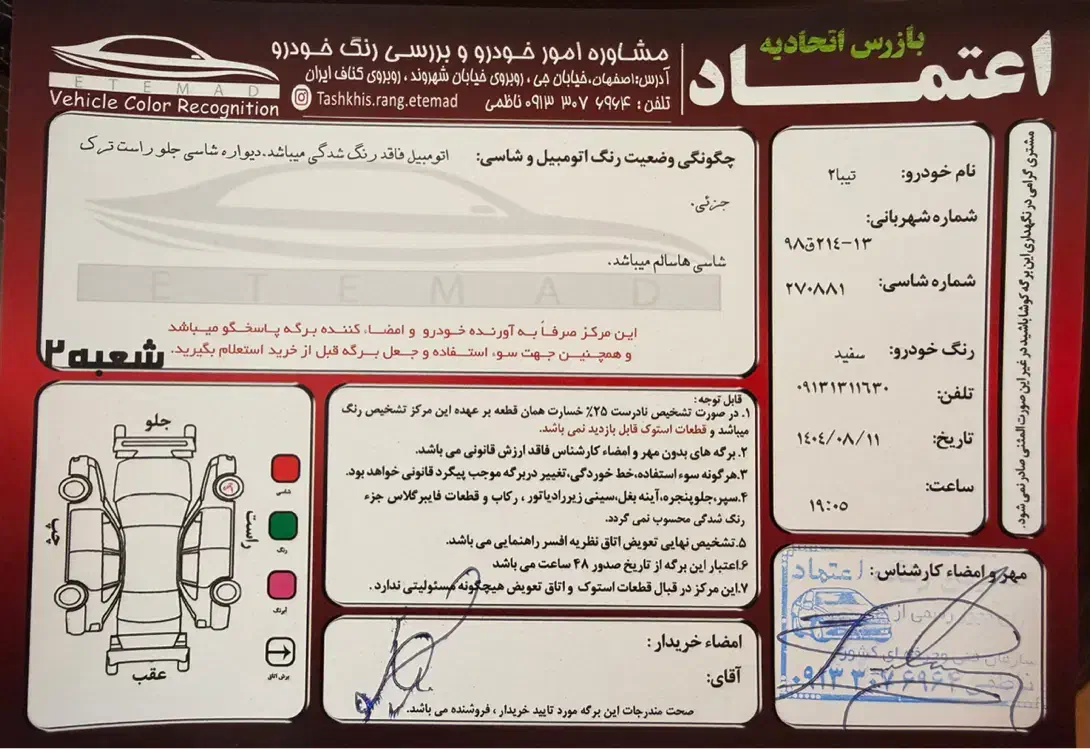 بازرس اتحادیه
اعتمــاد
مشاوره امور خودرو و بررسی رنگ خودرو
آدرس:اصفهان،خیابان جی ، روبروی خیابان شهروند، روبروی کناف ایران
تلفن : ۰۹۱۳ ۳۰۷ ۶۹۶۴ ناظمی
Tashkhis.rang.etemad
ETEMAD
Vehicle Color Recognition
مشتری گرامی در نگهداری این برگه کوشا باشید در غیر این صورت المثنی صادر نمی شود.
نام خودرو: تیبا۲
شماره شهربانی:
۱۳-۲۱٤ق۹۸
شماره شاسی:
۲۷۰۸۸۱
رنگ خودرو: سفید
تلفن: ۰۹۱۳۱۳۱۱٦۳۰
تاریخ: ۱٤۰٤/۰۸/۱۱
ساعت:
۱۹:۰۵
چگونگی وضعیت رنگ اتومبیل و شاسی: اتومبیل فاقد رنگ شدگی میباشد.دیواره شاسی جلو راست ترک
جزئی.
شاسی ها سالم میباشد.
ETEMAD
این مرکز صرفاً به آورنده خودرو و امضاء کننده برگه پاسخگو میباشد
و همچنین جهت سوء استفاده و جعل برگه قبل از خرید استعلام بگیرید.
شعبه۲
قابل توجه:
۱. در صورت تشخیص نادرست ۲۵٪ خسارت همان قطعه بر عهده این مرکز تشخیص رنگ
میباشد و قطعات استوک قابل بازدید نمی باشد.
۲. برگه های بدون مهر و امضاء کارشناس فاقد ارزش قانونی می باشد.
۳.هرگونه سوء استفاده،خط خوردگی،تغییر دربرگه موجب پیگرد قانونی خواهد بود.
۴.سپر،جلوپنجره،آینه بغل،سینی زیررادیاتور ، رکاب و قطعات فایبرگلاس جزء
رنگ شدگی محسوب نمی گردد.
۵.تشخیص نهایی تعویض اتاق نظریه افسر راهنمایی می باشد.
۶.اعتبار این برگه از تاریخ صدور ۴۸ ساعت می باشد
۷.این مرکز در قبال قطعات استوک و اتاق تعویض هیچگونه مسئولیتی ندارد .
جلو
راست
چپ
عقب
شاسی
رنگ
لیرنگ
برش اتاق
امضاء خریدار :
آقای:
صحت مندرجات این برگه مورد تایید خریدار ، فروشنده می باشد.
مهر و امضاء کارشناس :
اعتماد
۰۹۱۳ ۳۰۷ ۶۹۶۴